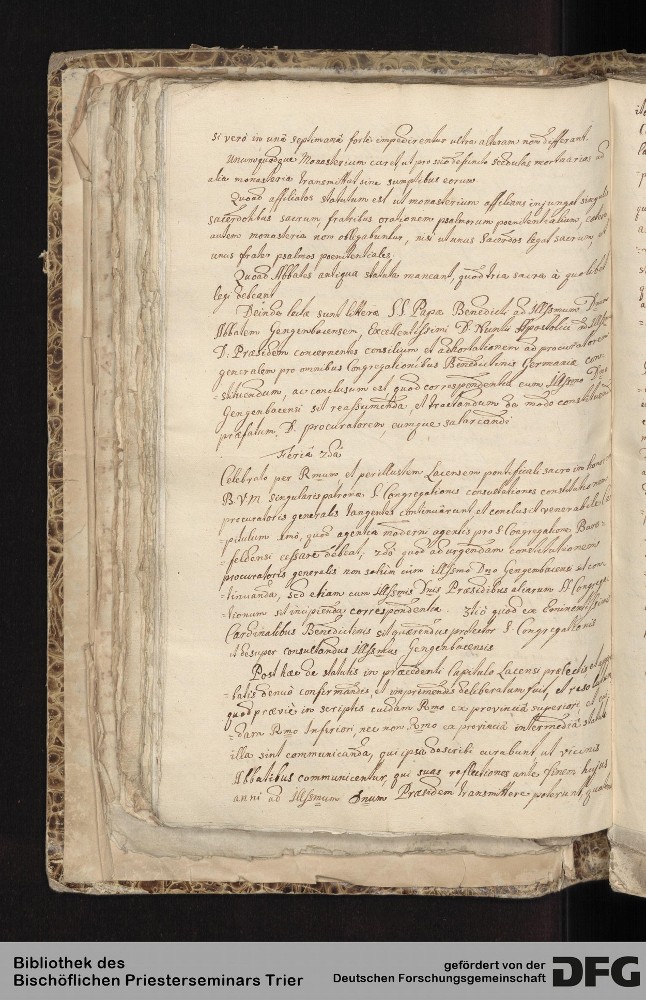 Si verò in unâ septimanâ fortè impedirentur ultra alteram non differant.
Unumquodque Monasterium curet ut pro suo defuncto schedulas mortuarias ad
alia monasteria transmittat sine sumptibus eorum
Quoad affiliatos statutum est ut monasterium affilians injungat singulis
sacerdotibus sacrum, fratribus orationem psalmorum poenitentialium, cætera
autem monasteria non obligabuntur, nisi ut unus Sacerdos legat sacrum, et
unus frater psalmos poenitentiales.
Quoad Abbates antiqua statuta maneant, quod tria sacra à quolibet
legi debeant
Deinde lectæ sunt litteræ SS Papæ Benedicti ad Illssmum Dnum
Abbatem Gengenbacensem, Excellentissimi D. Nuntii Apostolici ad
D. Præsidem concernentes consilium et adhortationem ad procuratorem
generalem pro omnibus Congregationibus Benedictinis Germaniæ con-
=stituendum, ac conclusum est, quod correspondentia cum Illssmo Dno
Gengenbacensi sit reassumenda, et tractandum de modo constituendi
præfatum D. procuratorem, eumque salarcandi
Feriâ 2dâ
Celebrato per Rmum et perillustrem Lacensem pontificali sacro in honorem
B.V.M. singularis patronæ S. Congregationis consultationes constitutionem
precuratoris generalis tangentes continuârunt et conclusit venerabile Ca-
pitulum 1mò, quod agentia moderni agentis pro S. Congregatione Burs-
=feldensi cessare debeat, 2dò quod ad urgendam constitutionem
procuratoris generalis non solùm cum illssmo Dno Gengenbacensi sit con-
=tinuanda, sed etiam cum Illssmis Dnis Præsidibus aliarum SS. Congrega-
=tionum sit incipienda correspondentia. 3tiò quod ex Eminentissimis
Cardinalibus Benedictinis sit quærendus protector S. Congregationis
et desuper consultandus Illssmus Gengenbacensis
Post hæc de statutis in præcedenti Capitulo Lacensi prolectis et appro-
=batis denuò confirmandis, et imprimendis deliberatum fuit, et resolutum
quod præviè in scriptis cuidam Rmo ex provinciâ superiori, et cui-
=dam Rmo Inferiori, nec non Rmo ex provinciâ intermediâ statuta
illa sint communicanda, qui ipsa describi curabunt, ut vicinis
Abbatibus communicentur, qui suas reflectiones ante finem hujus
anni ad Illssmum Dnum Præsidem transmittere poterunt,
Bibliothek des
Bischöflichen Priesterseminars Trier
gefördert von der
Deutschen Forschungsgemeinschaft
DFG